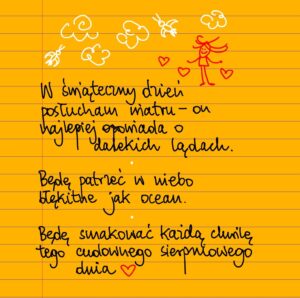 W świąteczny dzień
posłucham wiatru – on
najlepiej opowiada o
dalekich lądach.
Będę patrzeć w niebo
błękitne jak ocean.
Będę smakować każdą chwilę
tego cudownego sierpniowego
dnia